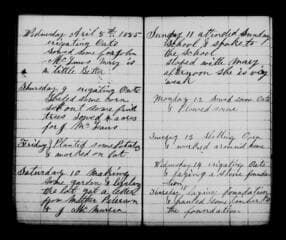 Wednesday April 8th 1885
irrigating Oats
Sowed some for John
Mc Innis Mary is
a little Better
Thursday 9 irigating Oats
Sheled some corn
set out some fruit
trees Sowed 4 acres
for J Mc Innis
Friday Planted some Potatoes
& worked on lot
Saturday 10 Making
some garden &
the lot got a letter
from Walter Peterson
& J
Sunday 11 attended Sunday
School, & spoke to
the School
stayed with Mary
afternoon she is very
weak
Monday 12 Sowed some Oats
& Plowed some
Tuesday 13
& worked around home
Wednesday 14 irigating Oats
& laying a stone foundation
Thursday laying foundation
& hauled some timber to
the foundation